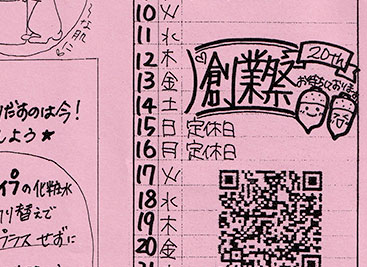 〜な肌に
だすのは今!
しよう★
イプの化粧水
り替えで
プラス せずに
10 火
11 水
12 木
13 金
14 土
15 日 定休日
16 月 定休日
17 火
18 水
19 木
20 金
20th
創業祭